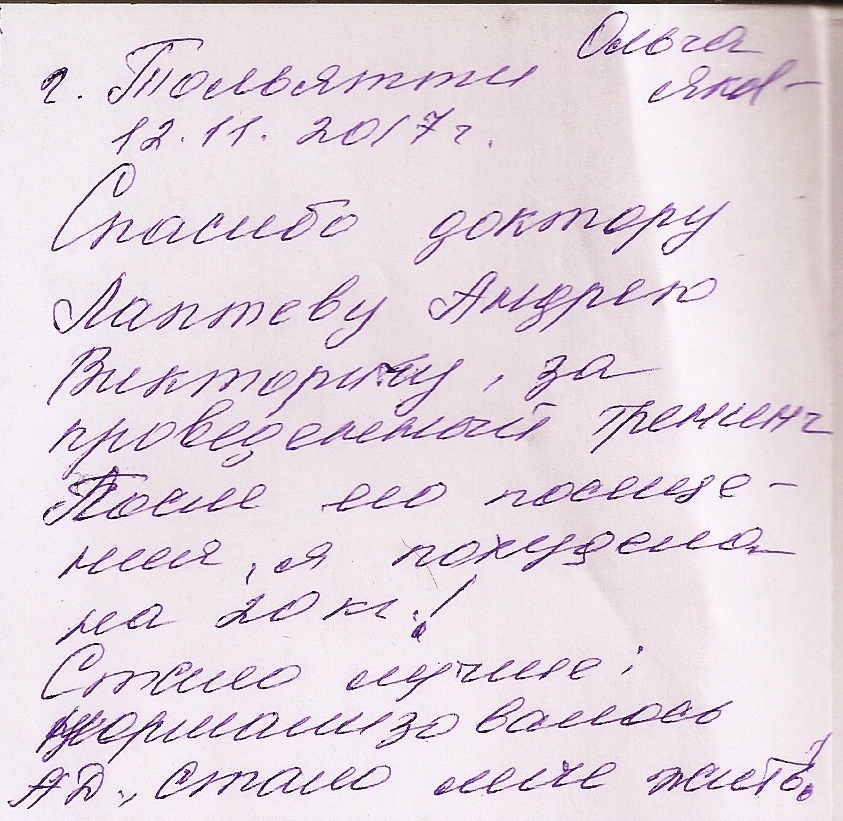 Ольга
г. Тольятти Яков-
12.11.2017г.
Спасибо доктору
Лаптеву Андрею
Викторичу, за
проведенный тренинг
После его посеще-
ния, я похудела
на 20 кг.!
Стало лучше:
нормализовалось
АД., стало легче жить!